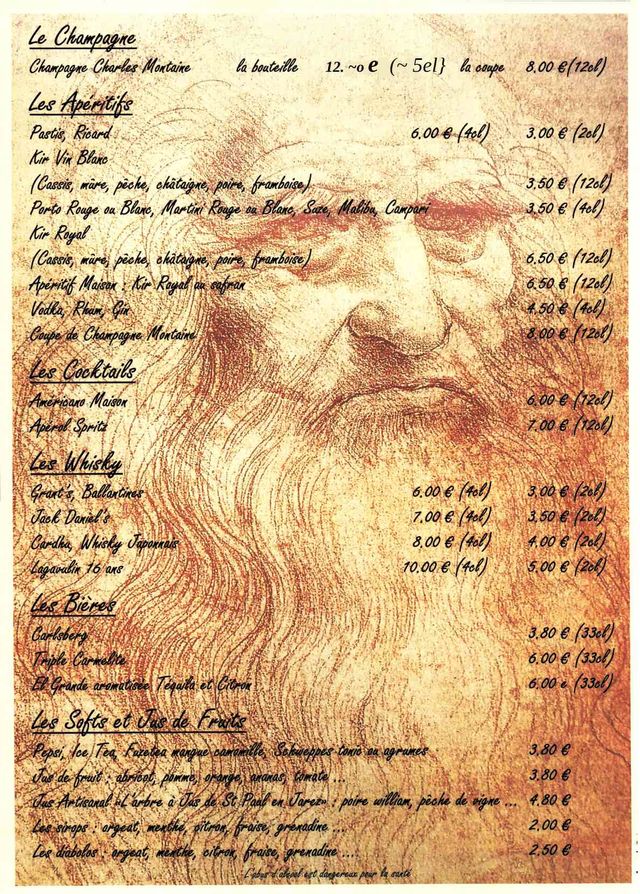 Le Champagne
Champagne Charles Montaine la bouteille 12. ~o e (~ 5el} la coupe 8,00 €(12cl)
Les Apéritifs
Pastis, Ricard 6,00 € (4cl) 3,00 € (2cl)
Kir Vin Blanc
(Cassis, mûre, pêche, châtaigne, poire, framboise) 3,50 € (12cl)
Porto Rouge ou Blanc, Martini Rouge ou Blanc, Suze, Malibu, Campari 3,50 € (4cl)
Kir Royal
(Cassis, mûre, pêche, châtaigne, poire, framboise) 6,50 € (12cl)
Apéritif Maison : Kir Royal au safran 6,50 € (12cl)
Vodka, Rhum, Gin 4,50 € (4cl)
Coupe de Champagne Montaine 8,00 € (12cl)
Les Cocktails
Américano Maison 6,00 € (12cl)
Aperol Spritz 7,00 € (12cl)
Les Whisky
Grant's, Ballantines 6,00 € (4cl) 3,00 € (2cl)
Jack Daniel's 7,00 € (4cl) 3,50 € (2cl)
Cardhu, Whisky Japonnais 8,00 € (4cl) 4,00 € (2cl)
Lagavulin 16 ans 10,00 € (4cl) 5,00 € (2cl)
Les Bières
Carlsberg 3,80 € (33cl)
Triple Carmelite 6,00 € (33cl)
El Grande aromatisée Téquila et Citron 6,00 e (33cl)
Les Softs et Jus de Fruits
Pepsi, Ice Tea, Fuzetea mangue camomille, Schweppes tonic ou agrumes 3,80 €
Jus de fruit : abricot, pomme, orange, ananas, tomate ... 3,80 €
Jus Artisanal «L'arbre à Jus de St Paul en Jarez» : poire william, pèche de vigne ... 4,80 €
Les sirops : orgeat, menthe, citron, fraise, grenadine ... 2,00 €
Les diabolos : orgeat, menthe, citron, fraise, grenadine .... 2,50 €
L'abus d'alcool est dangereux pour la santé